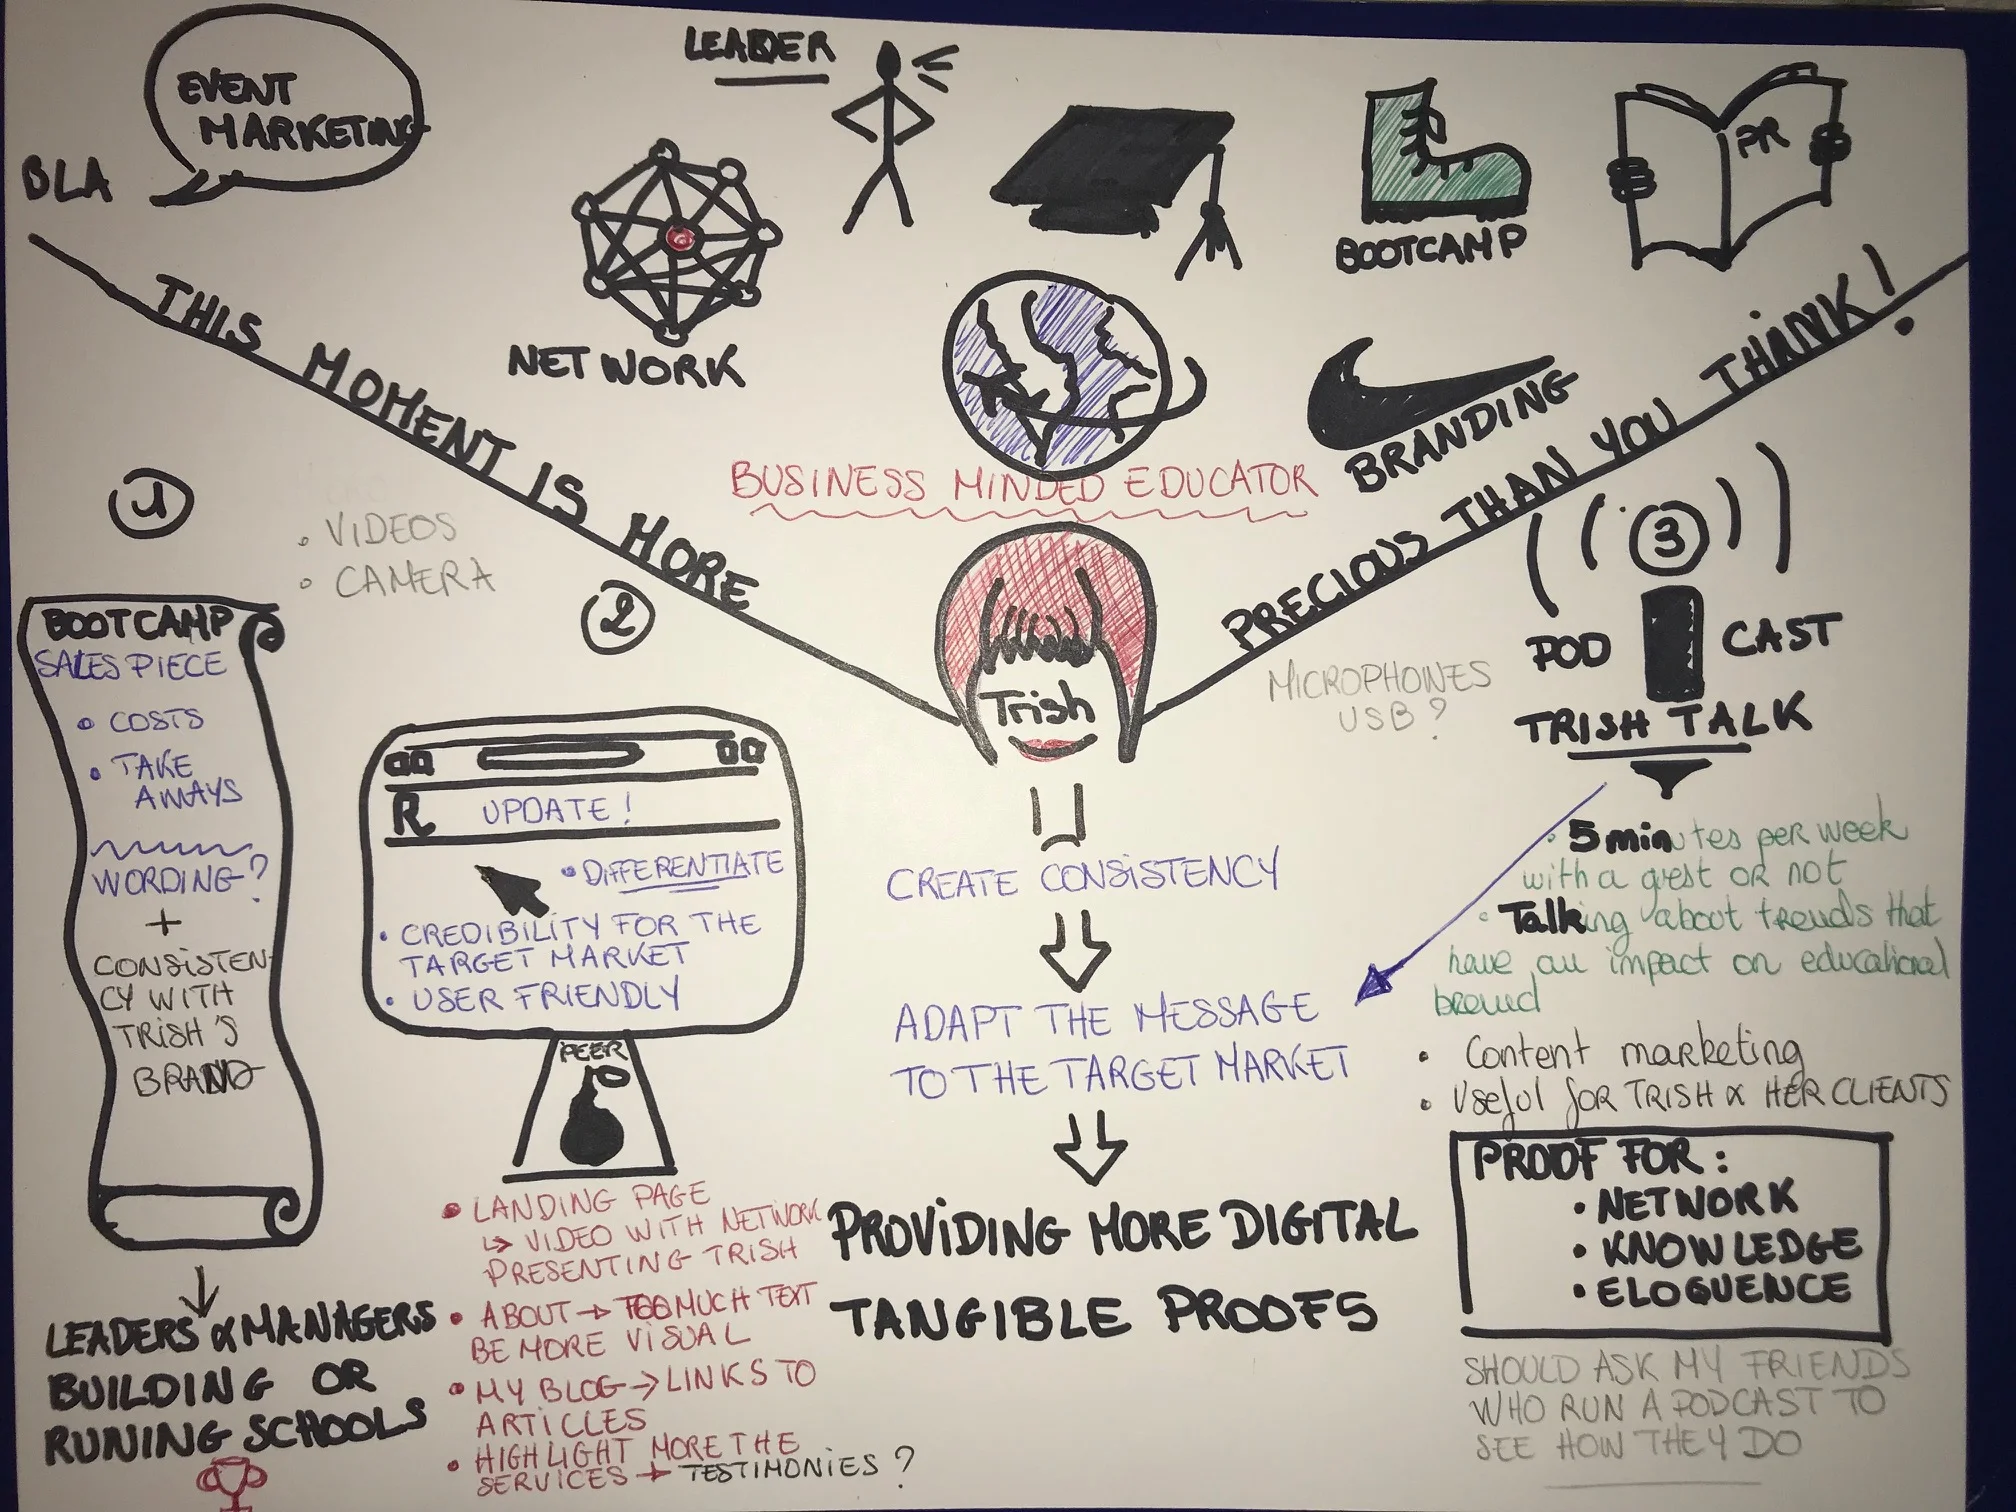 EVENT
MARKETING
BLA
LEADER
NETWORK
BOOTCAMP
PR
BRANDING
BUSINESS MINDED EDUCATOR
THIS MOMENT IS MORE
PRECIOUS THAN YOU THINK!
Trish
1
• VIDEOS
• CAMERA
BOOTCAMP
SALES PIECE
• COSTS
• TAKE
AWAYS
WORDING?
+
CONSISTEN-
CY WITH
TRISH'S
BRAND
LEADERS & MANAGERS
BUILDING OR
RUNING SCHOOLS
2
R UPDATE!
• DIFFERENTIATE
• CREDIBILITY FOR THE
TARGET MARKET
• USER FRIENDLY
PEER
• LANDING PAGE
↳ VIDEO WITH NETWORK
PRESENTING TRISH
• ABOUT → TOO MUCH TEXT
BE MORE VISUAL
• MY BLOG → LINKS TO
ARTICLES
• HIGHLIGHT MORE THE
SERVICES → TESTIMONIES?
CREATE CONSISTENCY
ADAPT THE MESSAGE
TO THE TARGET MARKET
PROVIDING MORE DIGITAL
TANGIBLE PROOFS
3
POD CAST
TRISH TALK
MICROPHONES
USB?
• 5 minutes per week
with a guest OR not
• Talking about trends that
have an impact on educational
• Content marketing
• Useful for TRISH & HER CLIENTS
PROOF FOR:
• NETWORK
• KNOWLEDGE
• ELOQUENCE
SHOULD ASK MY FRIENDS
WHO RUN A PODCAST TO
SEE HOW THEY DO